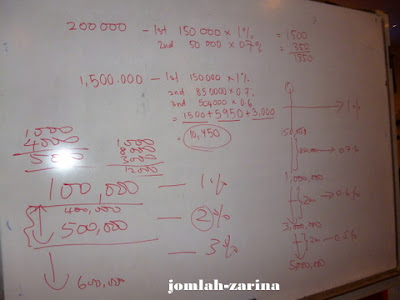 200000 – 1st 150 000 x 1% = 1500
2nd 50 000 x 0.7% = 350
1850
1,500.000 – 1st 150000 x 1%
2nd 850000 x 0.7%
3rd 500000 x 0.6
= 1500 + 5950 + 3,000
= 10,450
1000
4000
5000
1000
8000
3000
12000
100,000 — 1%
400,000
500,000 — 2%
— 3%
600,000
1%
150,000
0.7%
1,000,000
2m → 0.6%
3,000,000
2m → 0.6%
5000,000
jomlah-zarina